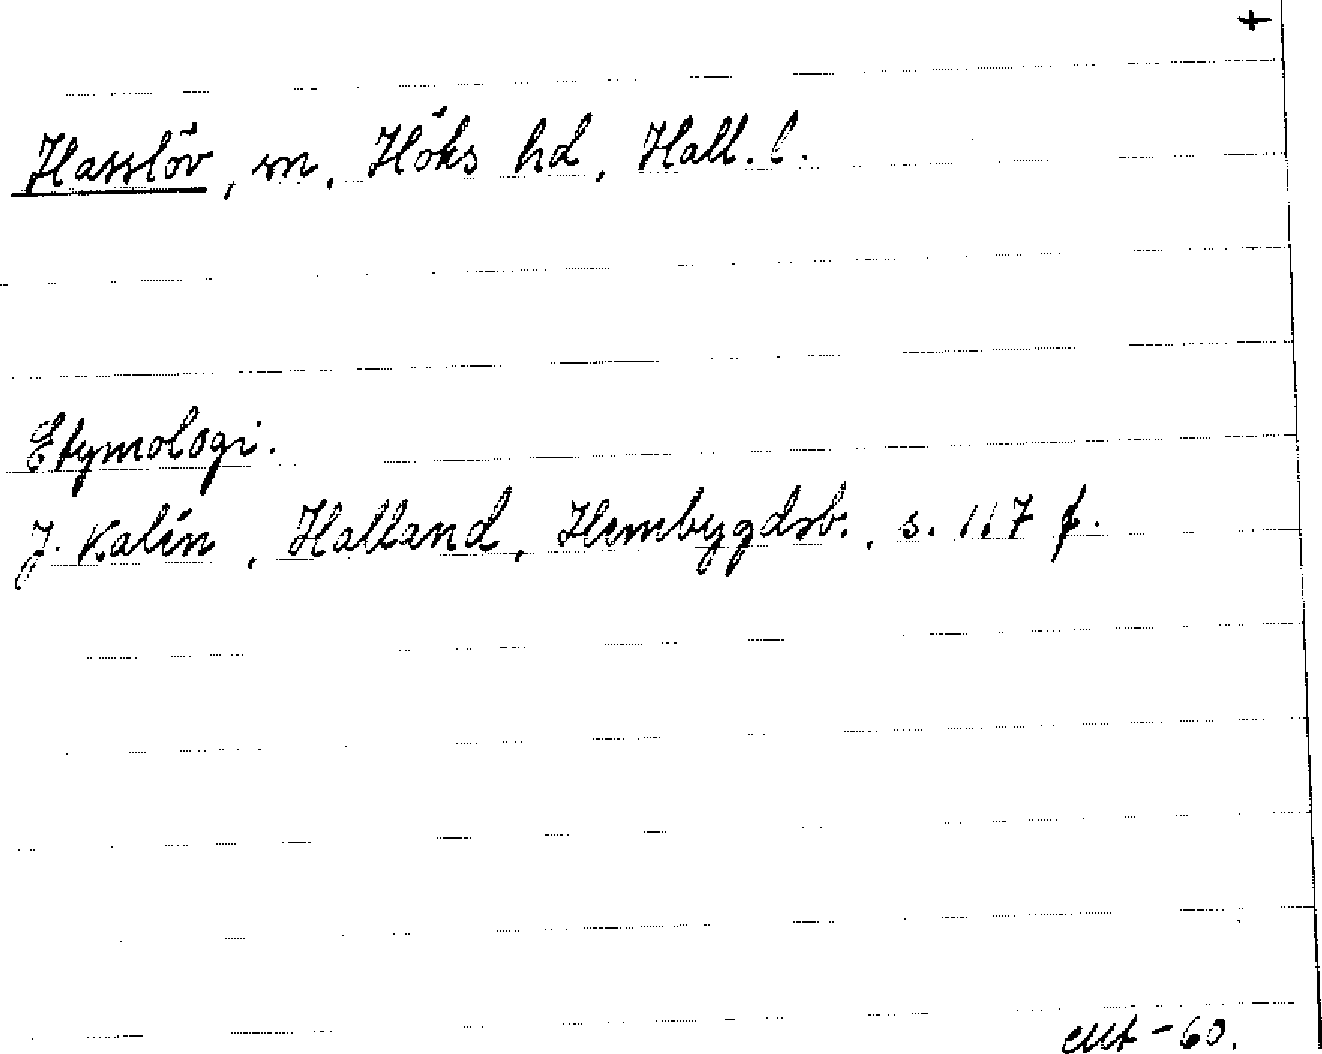 +
Hasslöv, sn, Höks hd, Hall. l.
Etymologi.
J. Kalén, Halland, Hembygdsb., s. 117 f.
-60.